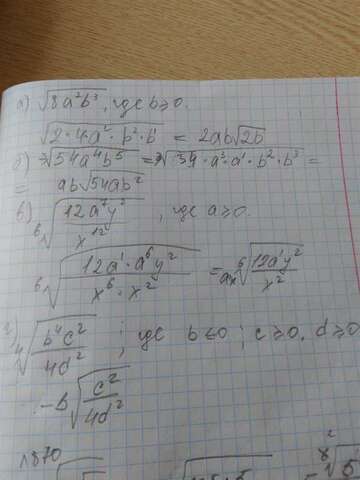 а) √(8a²b³), где b≥0.
√(2·4a²·b²·b) = 2ab√2b
б) ³√(54a⁴b⁵) = ³√(54·a³·a¹·b²·b³) =
= ab√(54ab²)
в) ⁶√(12a⁷y²/x¹²), где a≥0.
⁶√(12a¹·a⁶y²/x⁶·x²) = ax⁶√(12a¹y²/x²)
г) ⁴√(b⁴c²/4d²); где b≤0; c≥0, d≥0
-b√(c²/4d²)
1870